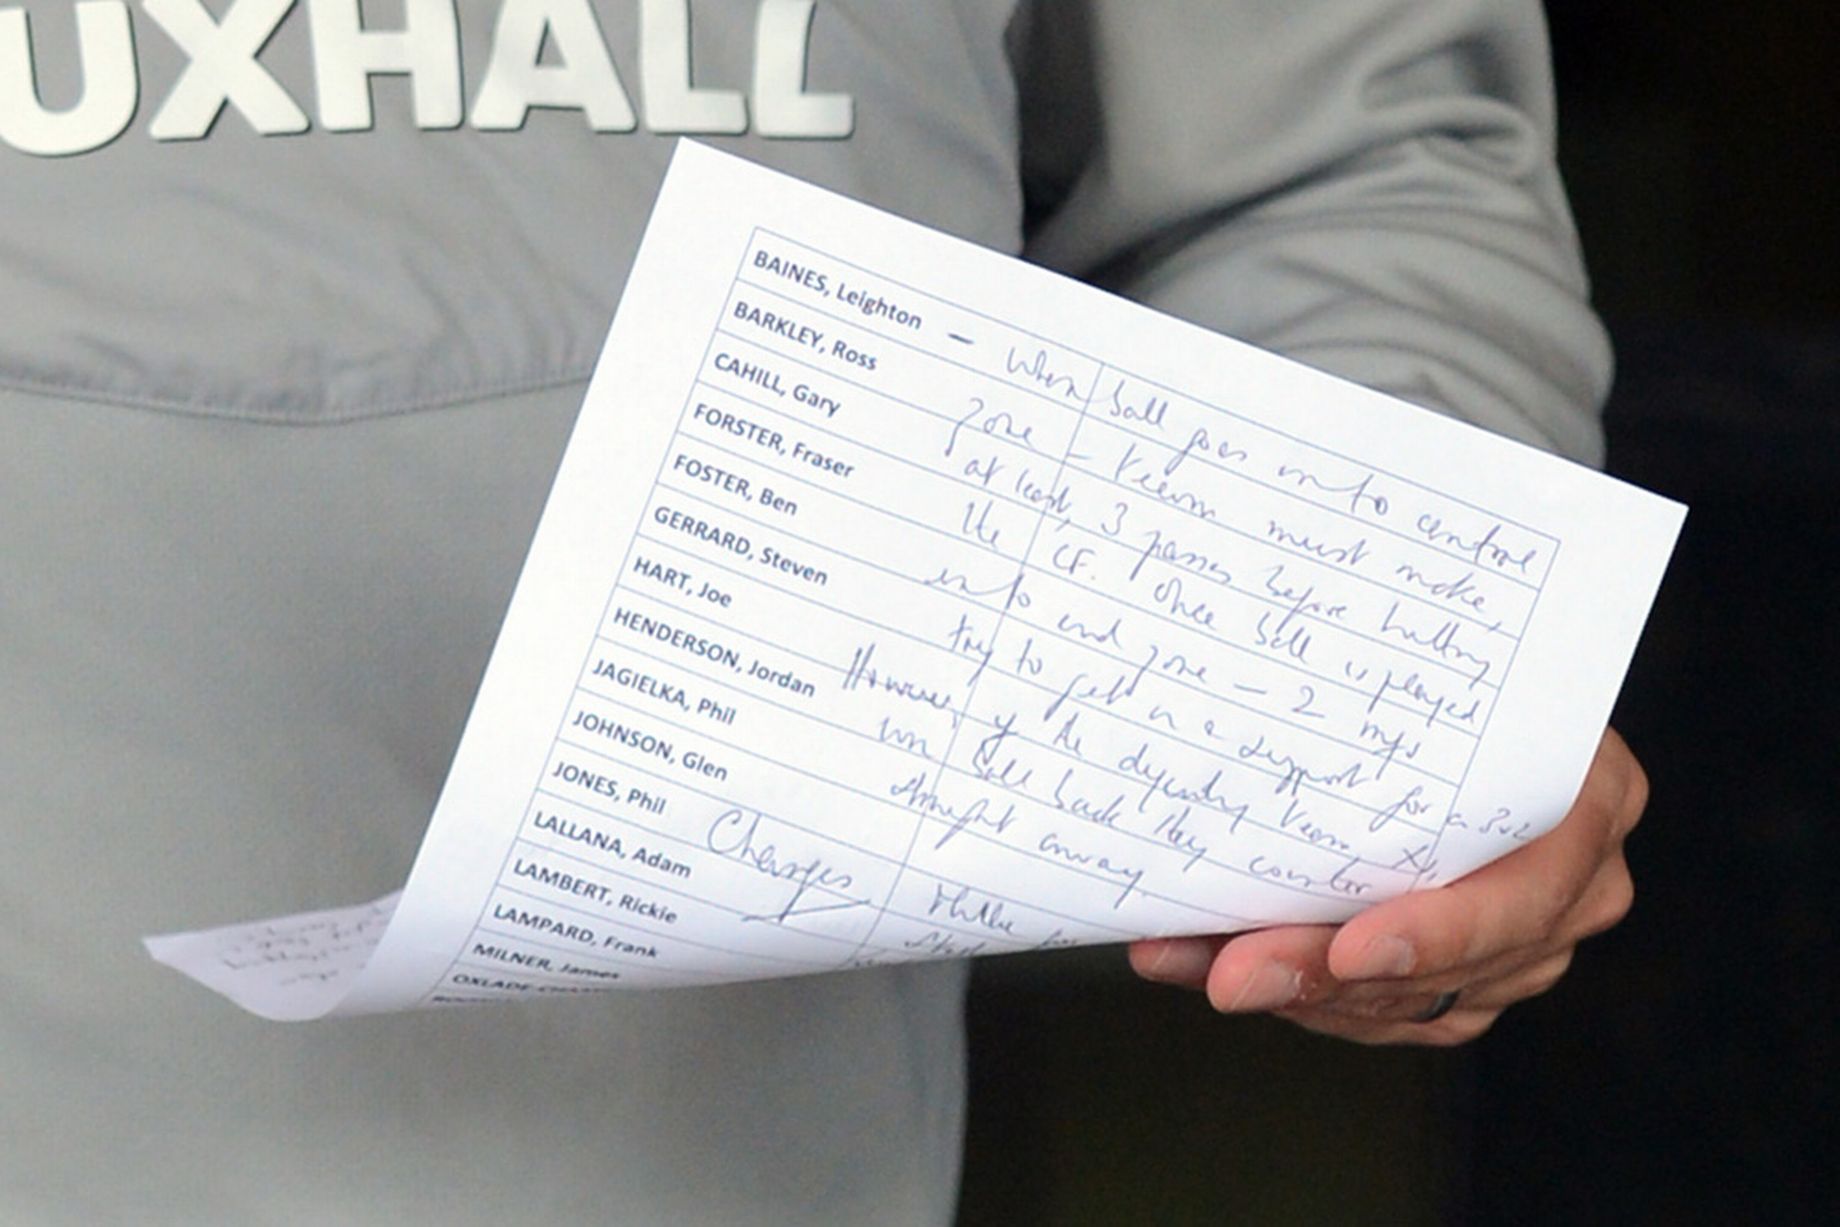 UXHALL
BAINES, Leighton
BARKLEY, Ross
CAHILL, Gary
FORSTER, Fraser
FOSTER, Ben
GERRARD, Steven
HART, Joe
HENDERSON, Jordan
JAGIELKA, Phil
JOHNSON, Glen
JONES, Phil
LALLANA, Adam
LAMBERT, Rickie
LAMPARD, Frank
MILNER, James
OXLADE-CHAM
- When ball goes into centre
zone - team must make
at least, 3 passes before hitting
the CF. Once ball is played
into end zone - 2 mfs
try to get in a support for a 3v2
However, if the defending team
win ball back they counter
straight away
Changes